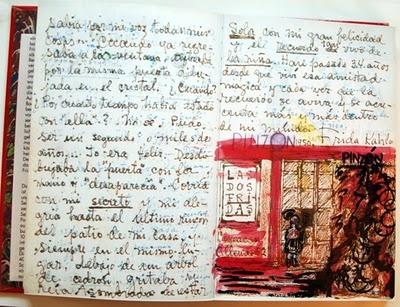 sabía con mi voz todas mis
cosas... Cuando ya regre-
saba a la ventana, entraba
por la misma puerta dibu-
jada en el cristal. ¿Cuándo?
¿Por cuánto tiempo había estado
con "ella"? No sé. Pudo
ser un segundo o miles de
años... Yo era feliz. Desdi-
bujaba la puerta con la
mano y "desaparecía". Corría
con mi secreto y mi ale-
gría hasta el último rincón
del patio de mi casa, y
siempre en el mismo lu-
gar, debajo de un árbol
de cedrón, gritaba y
reía Asombrada de estar
Sola con mi gran felicidad
y el Recuerdo tan vivo de
la niña. Han pasado 34 años
desde que viví esa amistad
mágica y cada vez que la
recuerdo, se aviva y se acre-
centa más y más dentro
de mi mundo.
PINZÓN 1950. Frida Kahlo
PINZÓN
LAS
DOS
FRIDAS